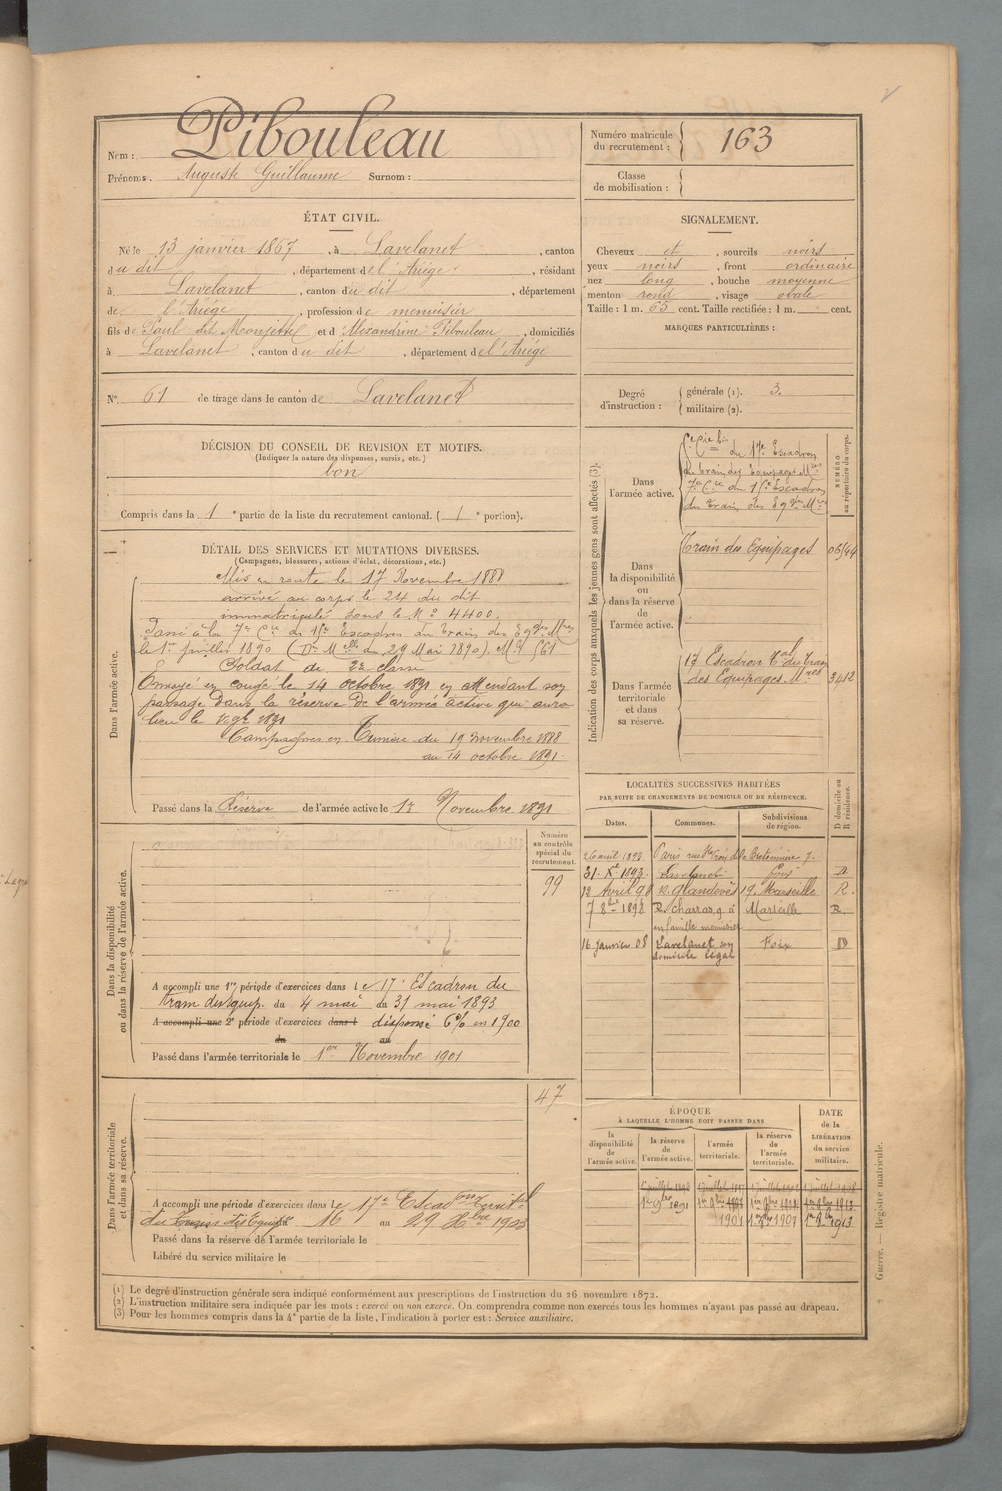 Nom : Pibouleau
Prénoms. Auguste Guillaume Surnom :
Numéro matricule du recrutement : 163
Classe de mobilisation :
ÉTAT CIVIL.
Né le 13 janvier 1867, à Lavelanet, canton
du dit, département de l'Ariège, résidant
à Lavelanet, canton du dit, département
de l'Ariège, profession de menuisier
fils de Paul dit et d Alexandrine Pibouleau, domiciliés
à Lavelanet, canton du dit, département de l'Ariège
SIGNALEMENT.
Cheveux et, sourcils noirs
yeux noirs, front ordinaire
nez long, bouche moyenne
menton rond, visage ovale
Taille : 1 m. 65 cent. Taille rectifiée : 1 m. cent.
MARQUES PARTICULIÈRES :
N° 61 de tirage dans le canton de Lavelanet
Degré d'instruction : générale (1). 3.
militaire (2).
DÉCISION DU CONSEIL DE REVISION ET MOTIFS.
(Indiquer la nature des dispenses, sursis, etc.)
bon
Compris dans la 1e partie de la liste du recrutement cantonal. (1e portion).
DÉTAIL DES SERVICES ET MUTATIONS DIVERSES.
(Campagnes, blessures, actions d'éclat, décorations, etc.)
Dans l'armée active.
Mis en route le 17 Novembre 1888
arrivé au corps le 24 du dit
immatriculé sous le N° 4400.
Passé à la 7e Cie du 15e Escadron du Train des Eqges Mres
le 1er Juillet 1890 (Don Melle du 29 Mai 1890). Mle 561
Soldat de 2e classe
Envoyé en congé le 14 octobre 1891 en attendant son
passage dans la réserve de l'armée active qui aura
lieu le 1er 9bre 1891
Campagnes en Tunisie du 19 novembre 1888
au 14 octobre 1891.
Passé dans la Réserve de l'armée active le 1er Novembre 1891
Indication des corps auxquels les jeunes gens sont affectés (3).
NUMÉRO au répertoire du corps.
Dans l'armée active.
du 17e Escadron
du train des Equipages Mres
7e Cie du 15e Escadron
du train des Eqges Mres
Dans la disponibilité ou dans la réserve de l'armée active.
Train des Equipages
Dans l'armée territoriale et dans sa réserve.
17 Escadron Tal du Train
des Equipages Mres 3412
LOCALITÉS SUCCESSIVES HABITÉES
PAR SUITE DE CHANGEMENTS DE DOMICILE OU DE RÉSIDENCE.
Dates. Communes. Subdivisions de région. D domicile ou R résidence.
26 avril 1893 Paris rue Ste Croix de la Bretonnière 7.
31 Xbre 1893 Lavelanet Foix D.
12 Avril 98 R. Glandevès 19. Marseille R.
7 8bre 1898 R. Charras 9 à Marseille R.
en famille menuisier
16 janvier 08 Lavelanet son Foix D
domicile légal
Dans la disponibilité ou dans la réserve de l'armée active.
Numéro au contrôle spécial du recrutement.
99
A accompli une 1re période d'exercices dans le 17e Escadron du
train des équip. du 4 mai au 31 mai 1893
A accompli une 2e période d'exercices dans l dispensé 6% en 1900
du au
Passé dans l'armée territoriale le 1er Novembre 1901
Dans l'armée territoriale et dans sa réserve.
47
A accompli une période d'exercices dans le 17e Escadron territal
du Train des Equipes 16 au 29 Xbre 1903
Passé dans la réserve de l'armée territoriale le
Libéré du service militaire le
ÉPOQUE
À LAQUELLE L'HOMME DOIT PASSER DANS
la disponibilité de l'armée active. la réserve de l'armée active. l'armée territoriale. la réserve de l'armée territoriale.
DATE de la LIBÉRATION du service militaire.
1er 9bre 1891
1901 1er 9bre 1907 1er 9bre 1913
(1) Le degré d'instruction générale sera indiqué conformément aux prescriptions de l'instruction du 26 novembre 1872.
(2) L'instruction militaire sera indiquée par les mots : exercé ou non exercé. On comprendra comme non exercés tous les hommes n'ayant pas passé au drapeau.
(3) Pour les hommes compris dans la 4e partie de la liste, l'indication à porter est : Service auxiliaire.
Guerre. — Registre matricule.